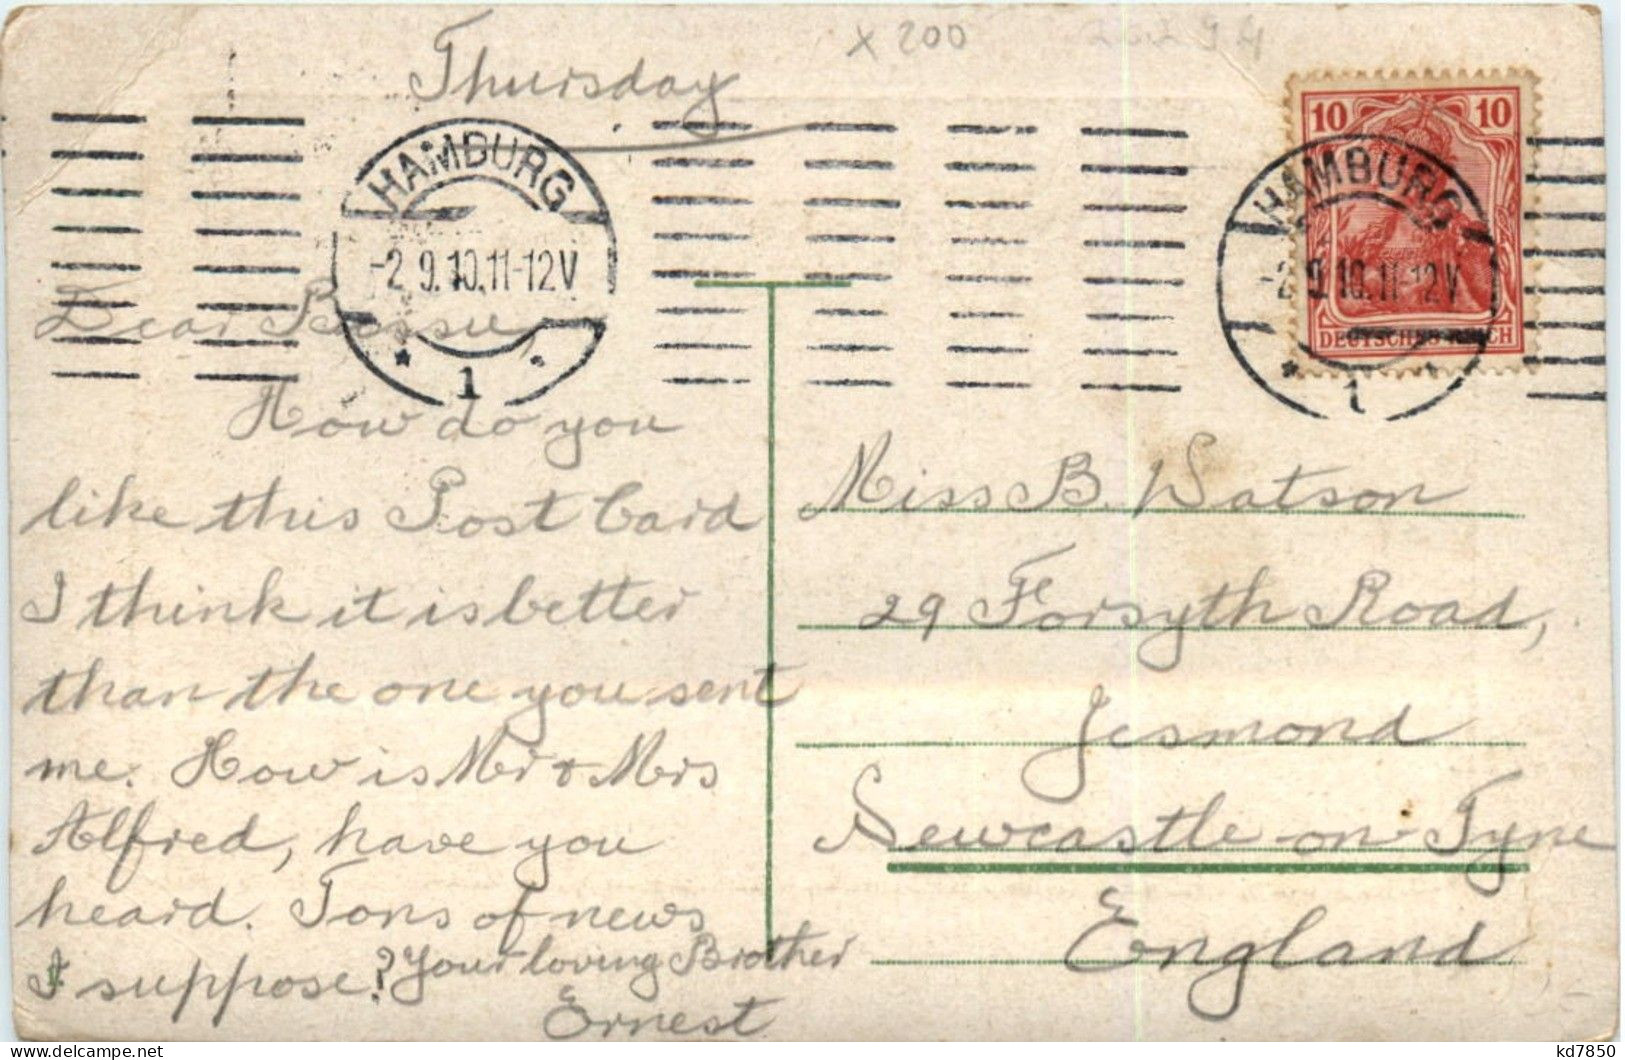 x 200
Thursday
HAMBURG
-2.9.10.11-12V
* 1 *
10 10
DEUTSCHES REICH
HAMBURG
-2.9.10.11-12V
* 1
Dear Bessie,
How do you
like this Post Card
I think it is better
than the one you sent
me. How is Mr & Mrs
Alfred, have you
heard. Tons of news
I suppose? Your loving Brother
Ernest
Miss B. Watson
29 Forsyth Road,
Jesmond
Newcastle-on-Tyne
England
kd7850